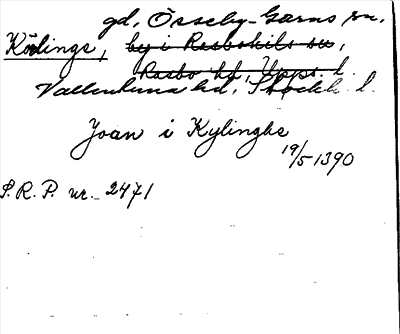 gd, Össeby-Garns sn,
Kölinge, by i Rasbokils sn,
Rasbo hd, Upps. l.
Vallentuna hd, Stockh. l.
Joan i Kylinghe
19/5 1390
S.R.P. nr. 2471